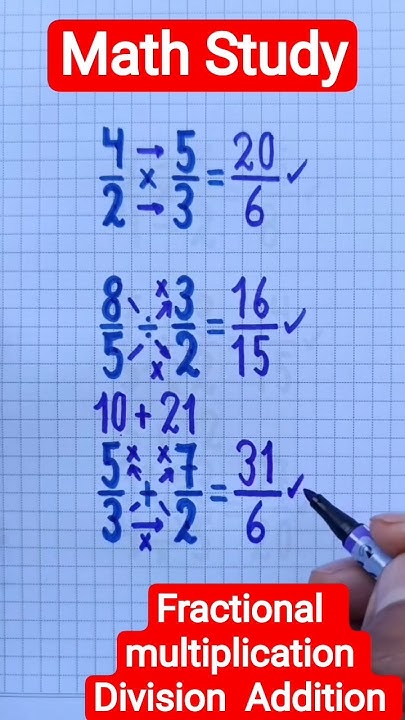 Math Study
4/2 × 5/3 = 20/6 ✓
8/5 ÷ 3/2 = 16/15 ✓
10 + 21
5/3 + 7/2 = 31/6 ✓
Fractional
multiplication
Division Addition